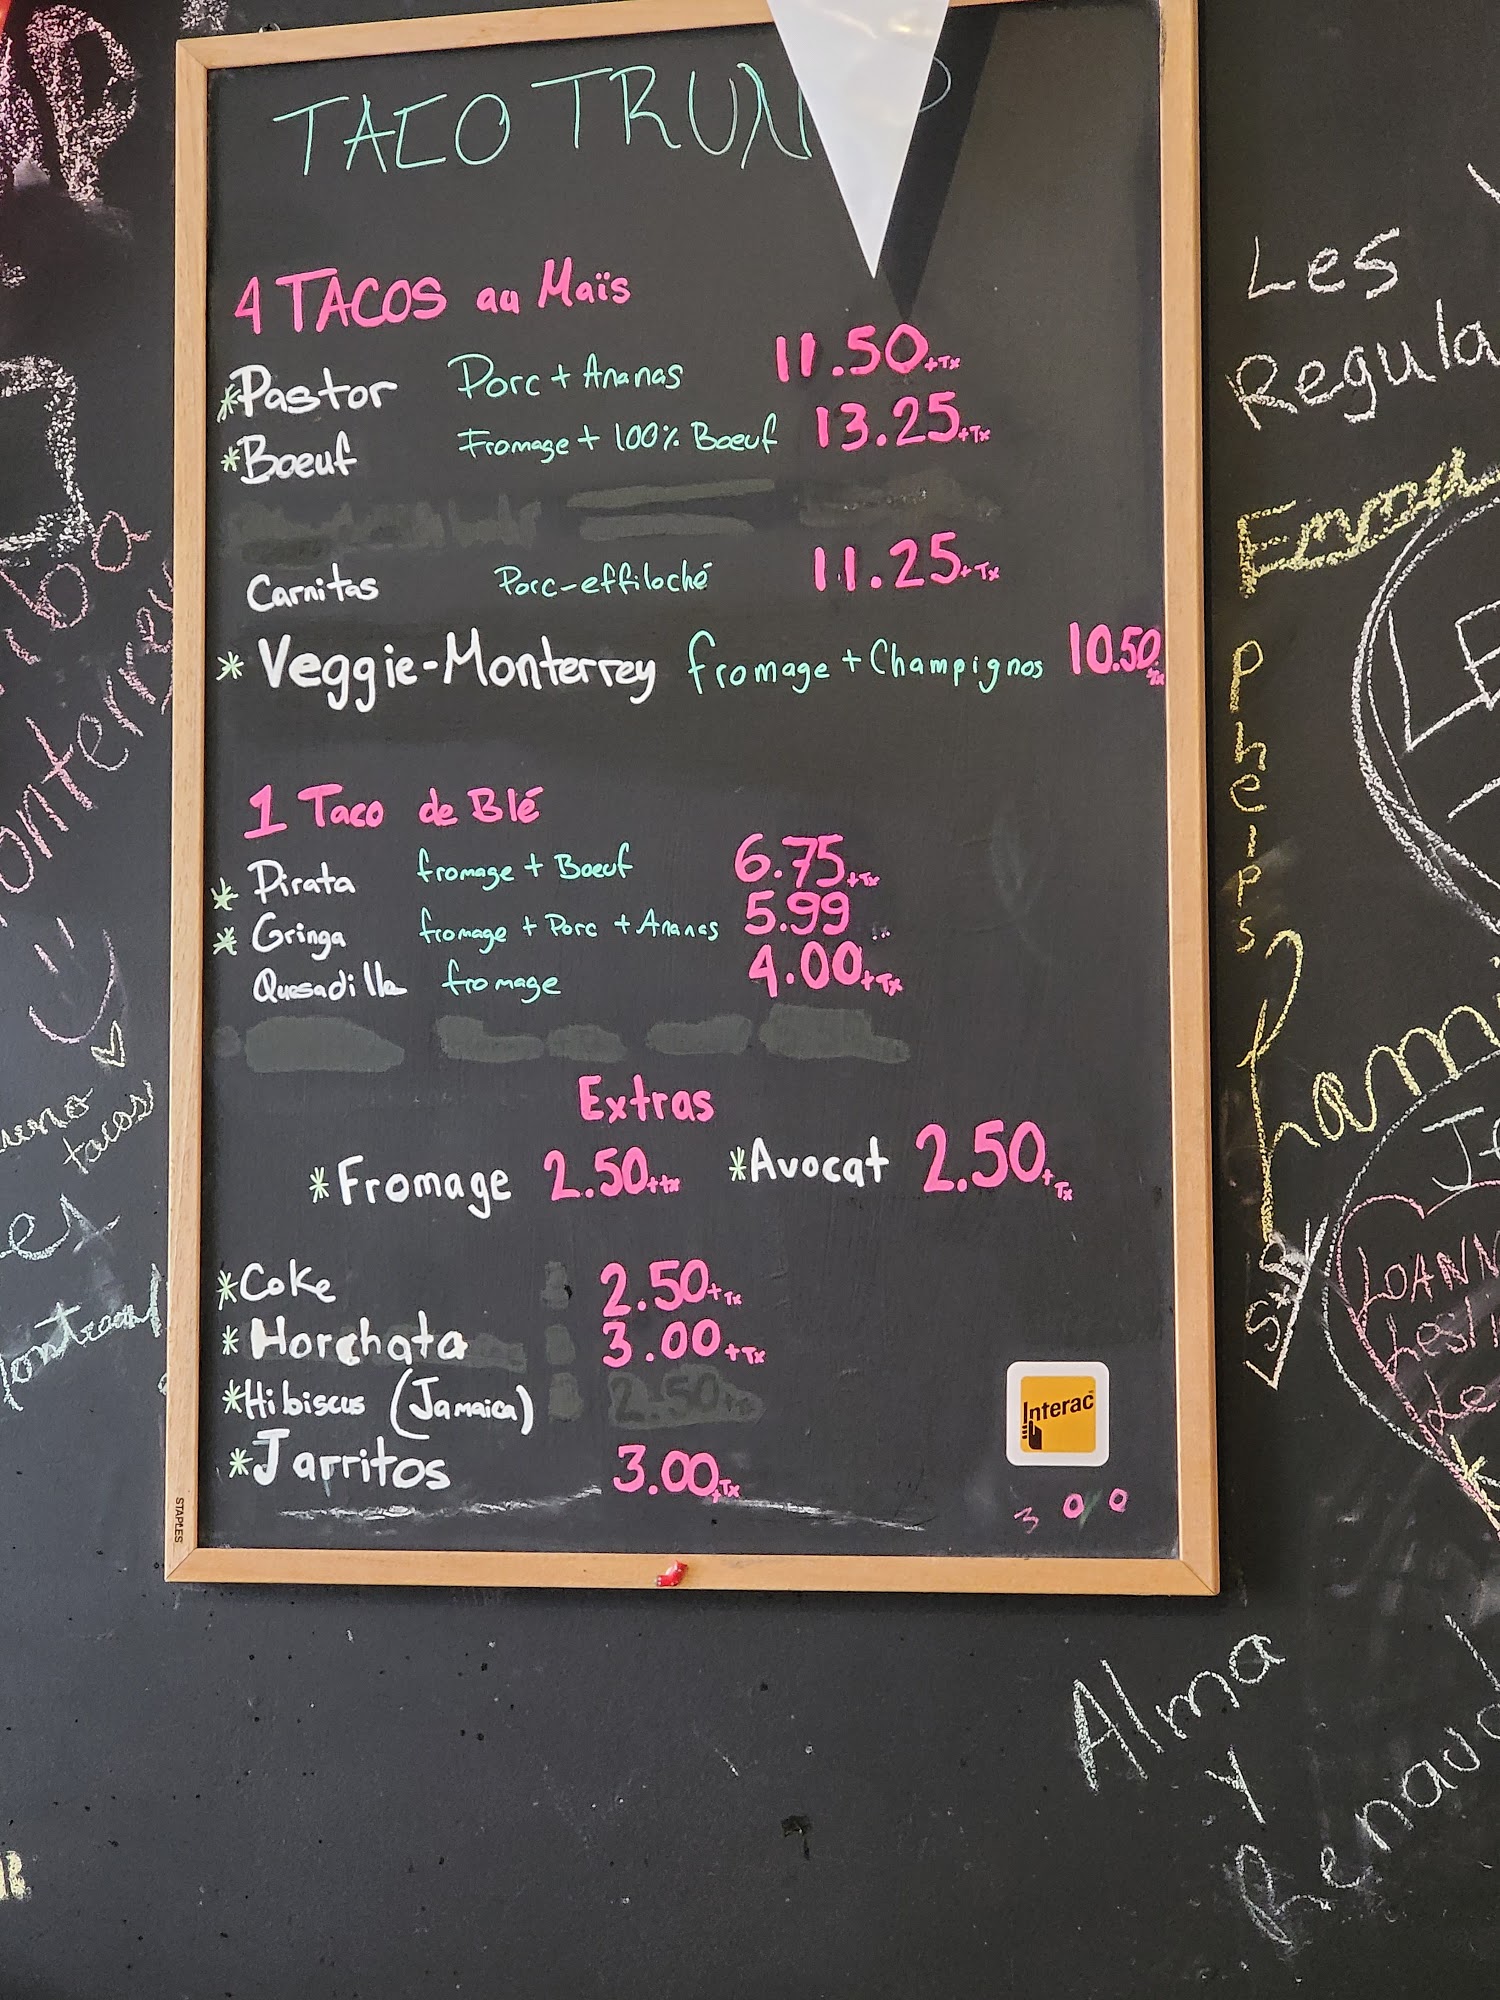 TACO TRUMP
4 TACOS au Maïs
*Pastor Porc + Ananas 11.50+Tx
*Boeuf Fromage + 100% Boeuf 13.25+Tx
Carnitas Porc-effiloché 11.25+Tx
* Veggie-Monterrey fromage + Champignos 10.50+Tx
1 Taco de Blé
* Pirata fromage + Boeuf 6.75+Tx
* Gringa fromage + Porc + Ananas 5.99
Quesadilla fromage 4.00+Tx
Extras
*Fromage 2.50+tx *Avocat 2.50+Tx
*Coke 2.50+Tx
* Horchata 3.00+Tx
*Hibiscus (Jamaica) 2.50
*Jarritos 3.00+Tx
Interac
300
STAPLES
Les
Regula
Emon
Phelps
tacos
et
LE
LSB
Alma
y
Renaud